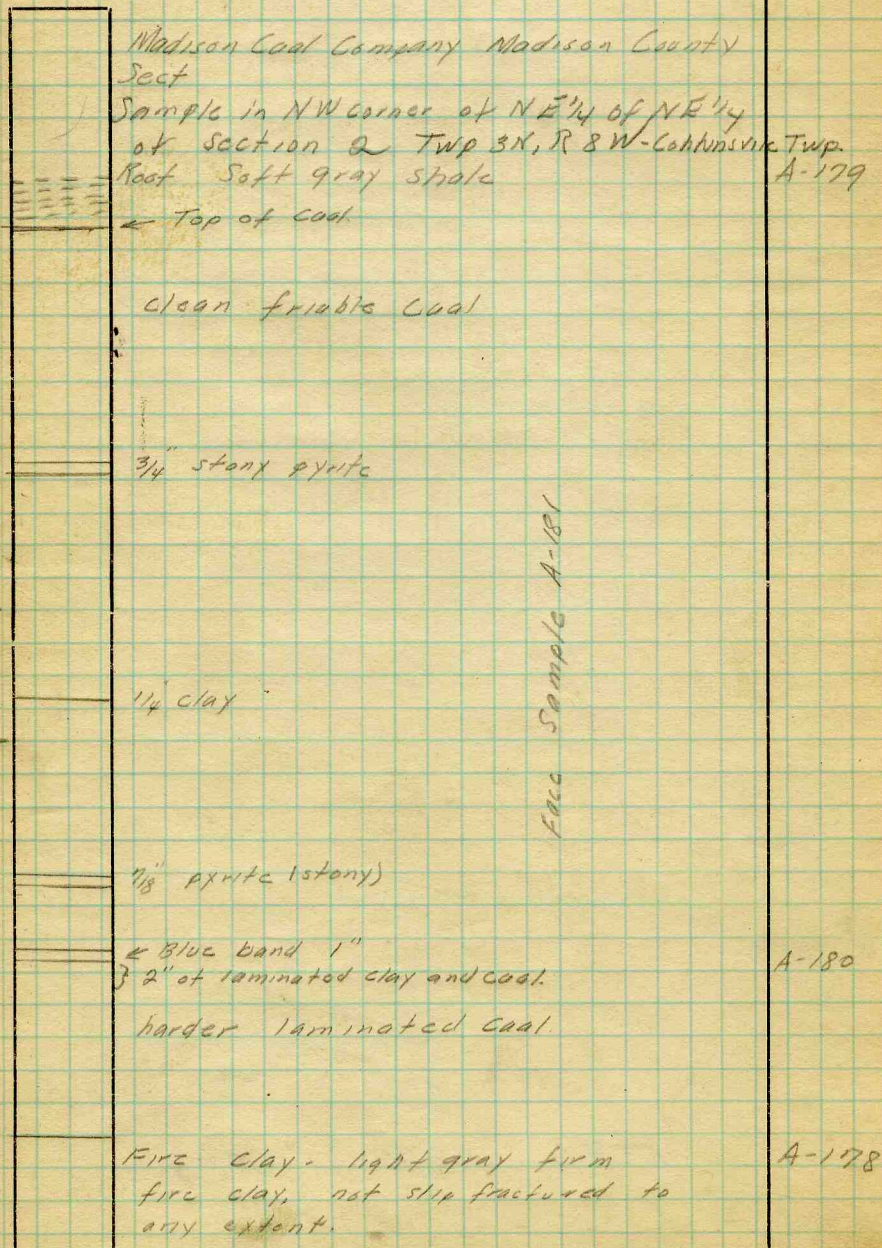 Madison Coal Company Madison County
Sect
Sample in NW corner of NE 1/4 of NE 1/4
of Section 2 Twp 3N, R 8 W-Collinsville Twp.
Roof Soft gray shale A-179
← Top of coal.
clean friable coal
3/4" stony pyrite
Face Sample A-181
1/4" clay
7/8" pyrite (stony)
← Blue band 1"
} 2" of laminated clay and coal. A-180
harder laminated coal.
Fire clay. light gray firm A-178
fire clay, not slip fractured to
any extent.